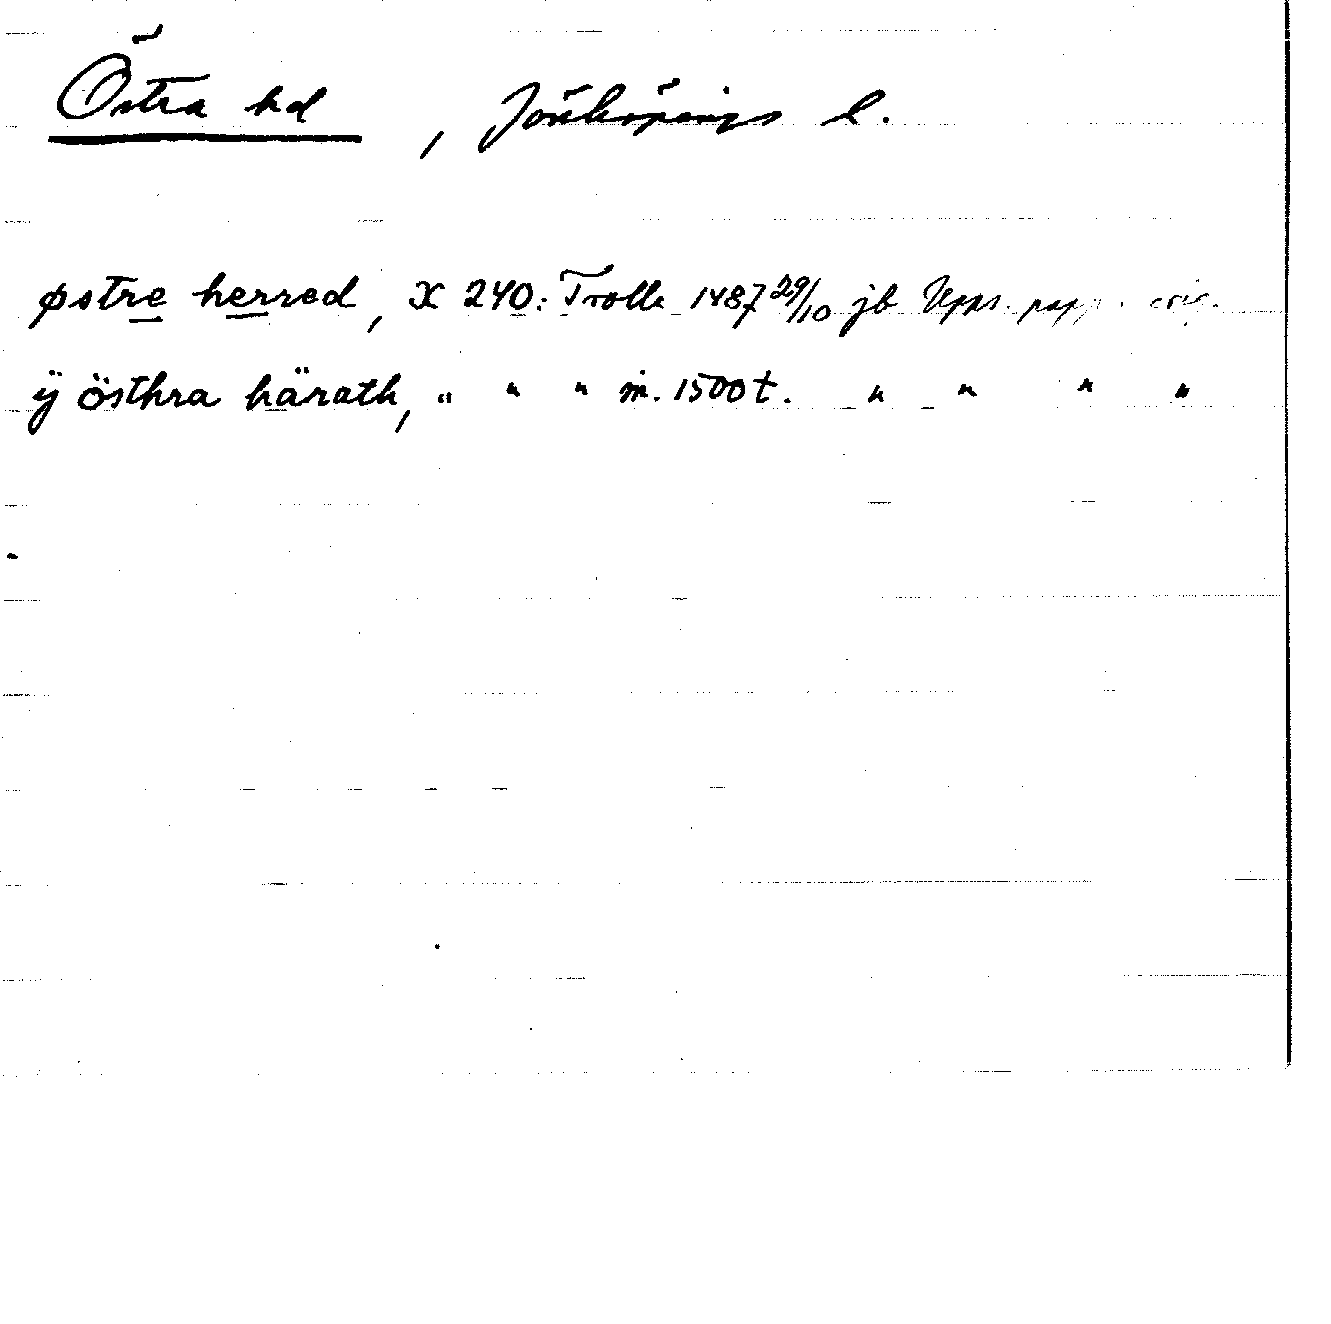 Östra hd, Jönköpings l.
østre herred, X 240: Trolle 1487 29/10 jb Upps. papp. orig.
ÿ östhra härath, " " " m. 1500 t. " " " "